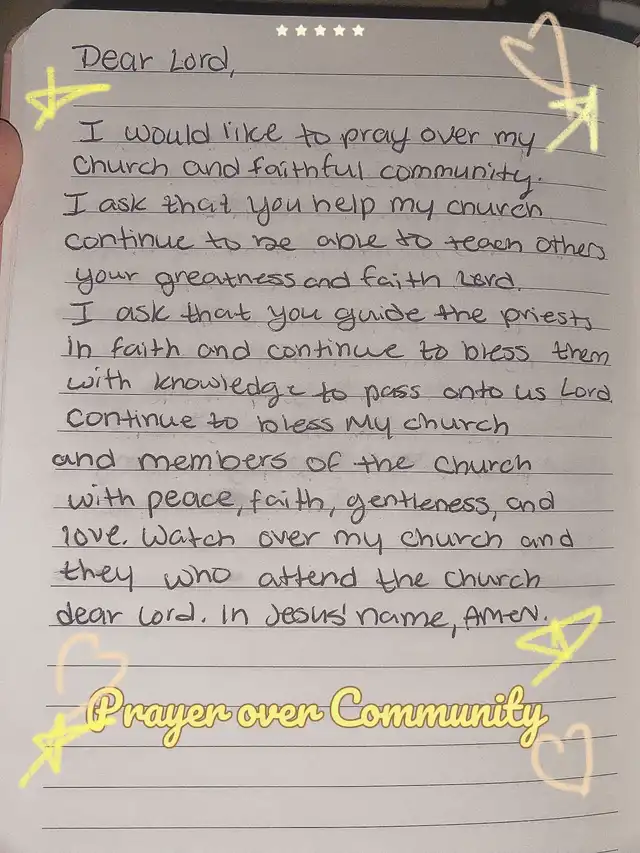 Dear Lord,
I would like to pray over my
church and faithful community.
I ask that you help my church
continue to be able to teach others
your greatness and faith Lord.
I ask that you guide the priests
in faith and continue to bless them
with knowledge to pass onto us Lord.
Continue to bless my church
and members of the church
with peace, faith, gentleness, and
love. Watch over my church and
they who attend the church
dear Lord. In Jesus' name, AMEN.
Prayer over Community